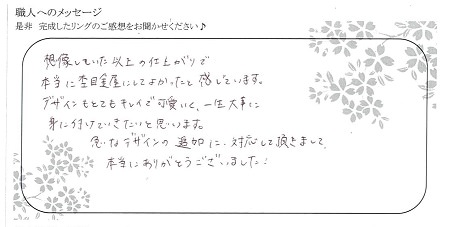 職人へのメッセージ
是非 完成したリングのご感想をお聞かせください♪
想像していた以上の仕上がりで
本当に杢目金屋にしてよかったと感じています。
デザインもとてもキレイで可愛いく、一生大事に
身に付けていきたいと思います。
急なデザインの追加に対応して頂きまして
本当にありがとうございました!